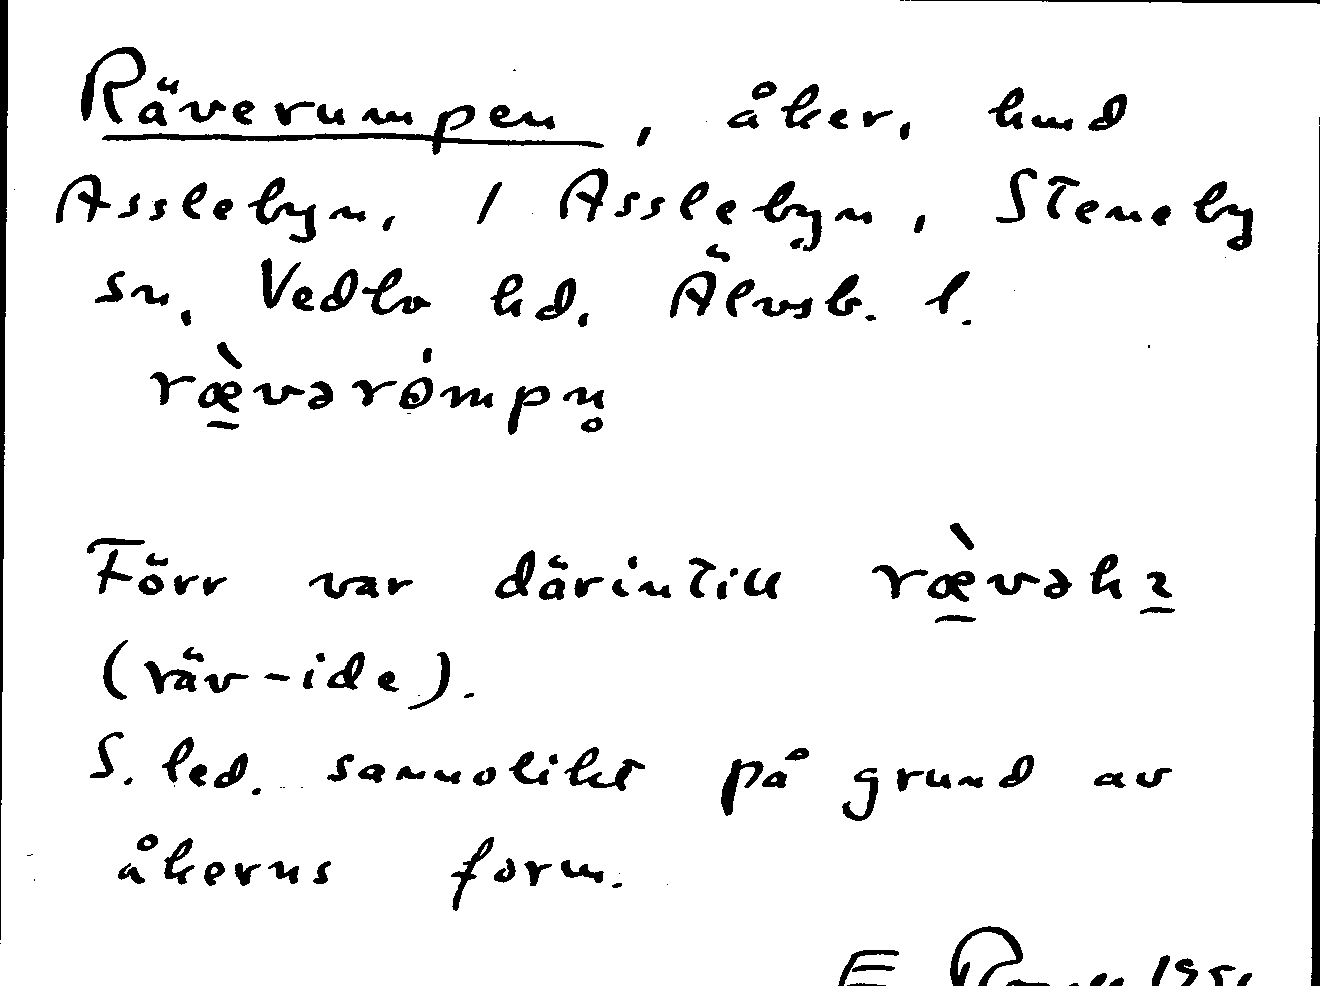 Räverumpen, åker, hmd
Asslebyn, 1 Asslebyn, Steneby
sn, Vedbo hd, Älvsb. l.
ræ̠̀vərómpn̥
Förr var därintill ræ̠̀vəhı̠
(räv-ide).
S. led. sannolikt på grund av
åkerns form.
E.